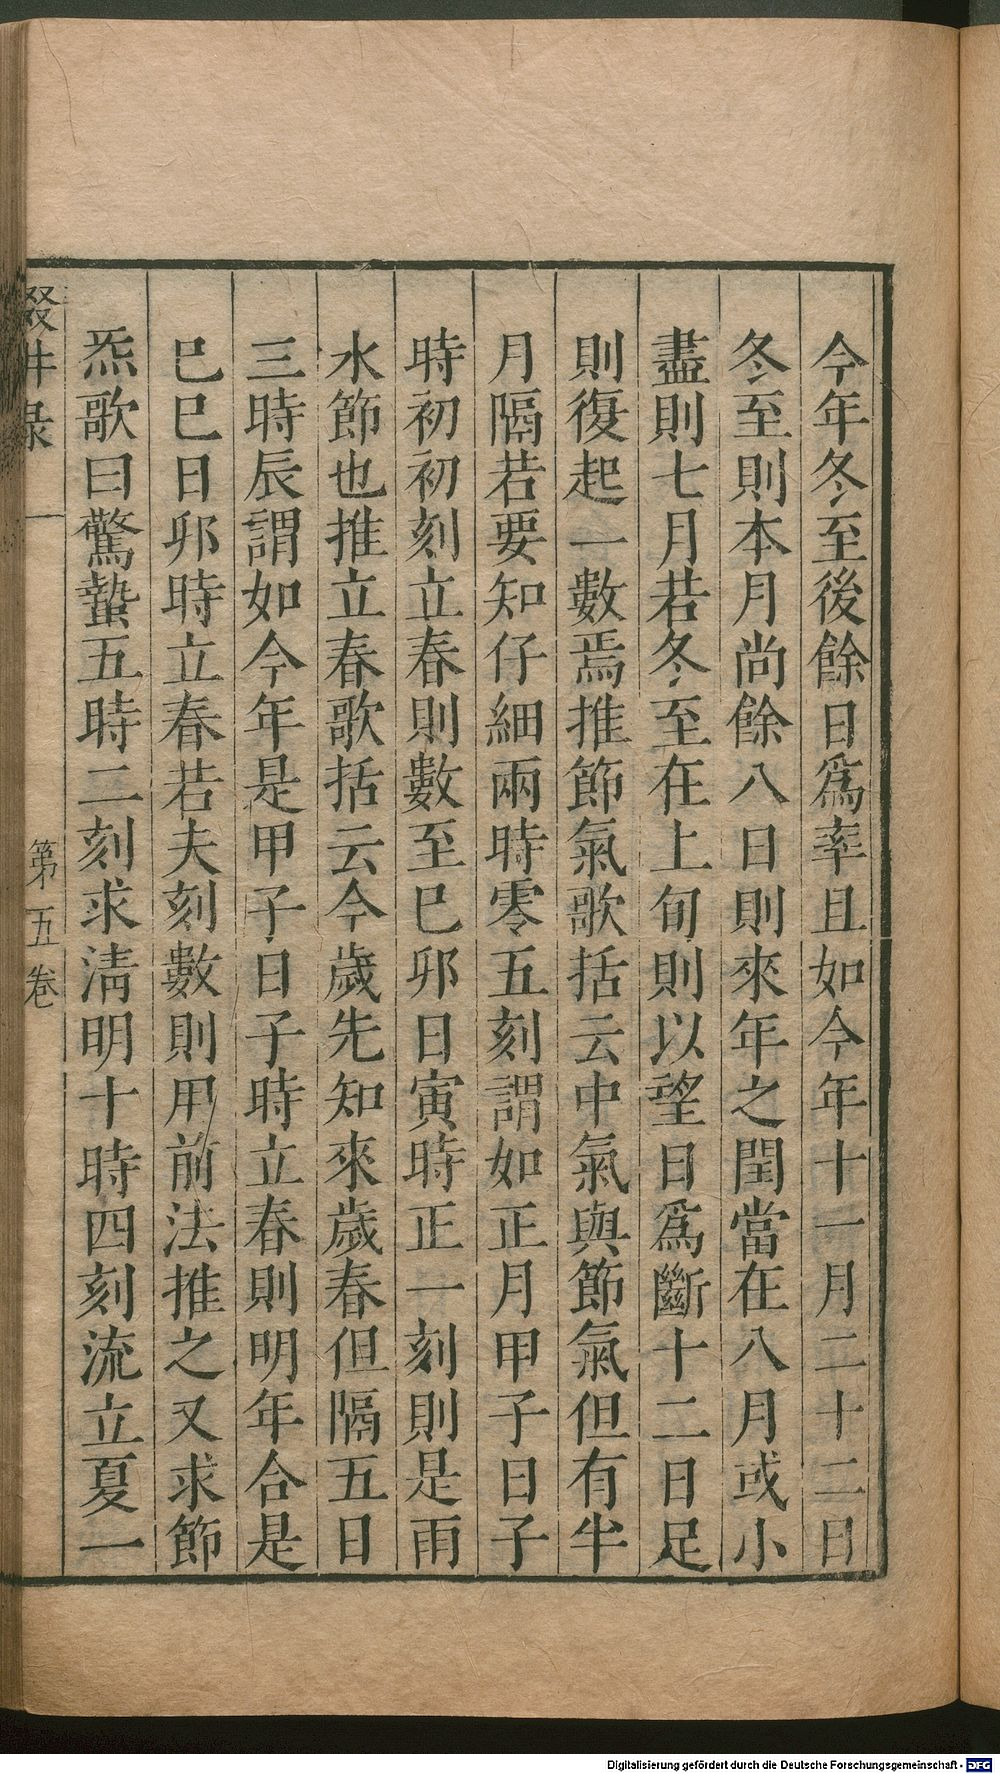 今年冬至後餘日爲率且如今年十一月二十二日
冬至則本月尚餘八日則來年之閏當在八月或小
盡則七月若冬至在上旬則以望日爲斷十二日足
則復起一數焉推節氣歌括云中氣與節氣但有半
月隔若要知仔細兩時零五刻謂如正月甲子日子
時初初刻立春則數至巳卯日寅時正一刻則是雨
水節也推立春歌括云今歲先知來歲春但隔五日
三時辰謂如今年是甲子日子時立春則明年合是
巳巳日卯時立春若夫刻數則用前法推之又求節
炁歌曰驚蟄五時二刻求清明十時四刻流立夏一
第五卷
Digitalisierung gefördert durch die Deutsche Forschungsgemeinschaft - DFG